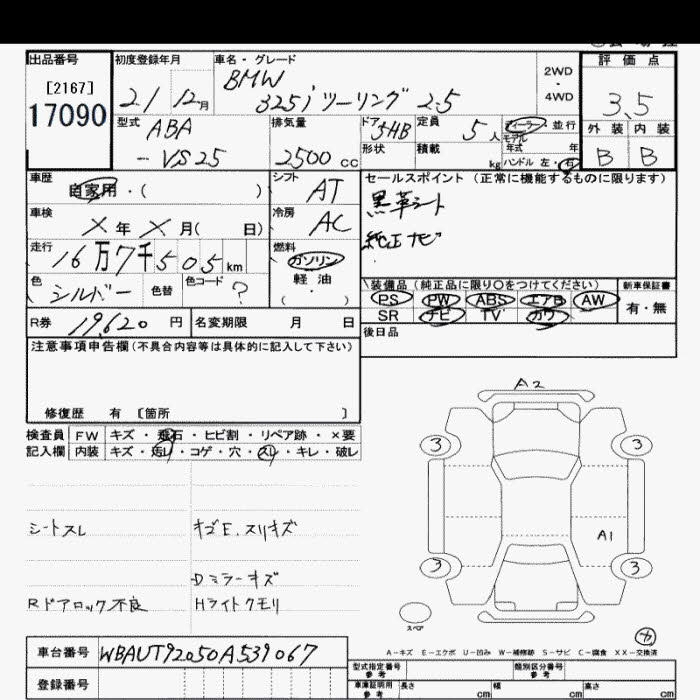 出品番号 初度登録年月 車名・グレード 評価点
[2167] BMW 2WD
17090 21 12月 325i ツーリング 2.5 ・ 3.5
4WD
型式 ABA 排気量 ドア 5HB 定員 5人 ディーラー・並行 外装 内装
-VS25 2500cc 形状 積載 kg モデル年式 年 B B
ハンドル 左・右
車歴 自家用・( ) シフト AT セールスポイント (正常に機能するものに限ります)
車検 X年X月( 日) 冷房 AC 黒革シート
走行 16万7千505km 燃料 ガソリン 純正ナビ
色 シルバー 色替 色コード ? 軽油
( ・ ) 装備品(純正品に限り〇をつけてください) 新車保証書
PS PW ABS エアB AW 有・無
R券 19,620円 名変期限 月 日 SR ナビ TV カワ
注意事項申告欄(不具合内容等は具体的に記入して下さい) 後日品
修復歴 有 [箇所 ]
検査員 FW キズ・飛石・ヒビ割・リペア跡・×要
記入欄 内装 キズ・汚レ・コゲ・穴・スレ・キレ・破レ
A2
3 3
シートスレ オゴE.スリキズ A1
3 3
Dミラーキズ
Rドアロック不良 Hライトクモリ
スペア
A-キズ E-エクボ U-凹み W-補修跡 S-サビ C-腐食 XX-交換済
車台番号 WBAUT92050A539067
型式指定番号 参考 類別区分番号 参考
登録番号 車庫証明用 参考 長さ cm 幅 cm 高さ cm